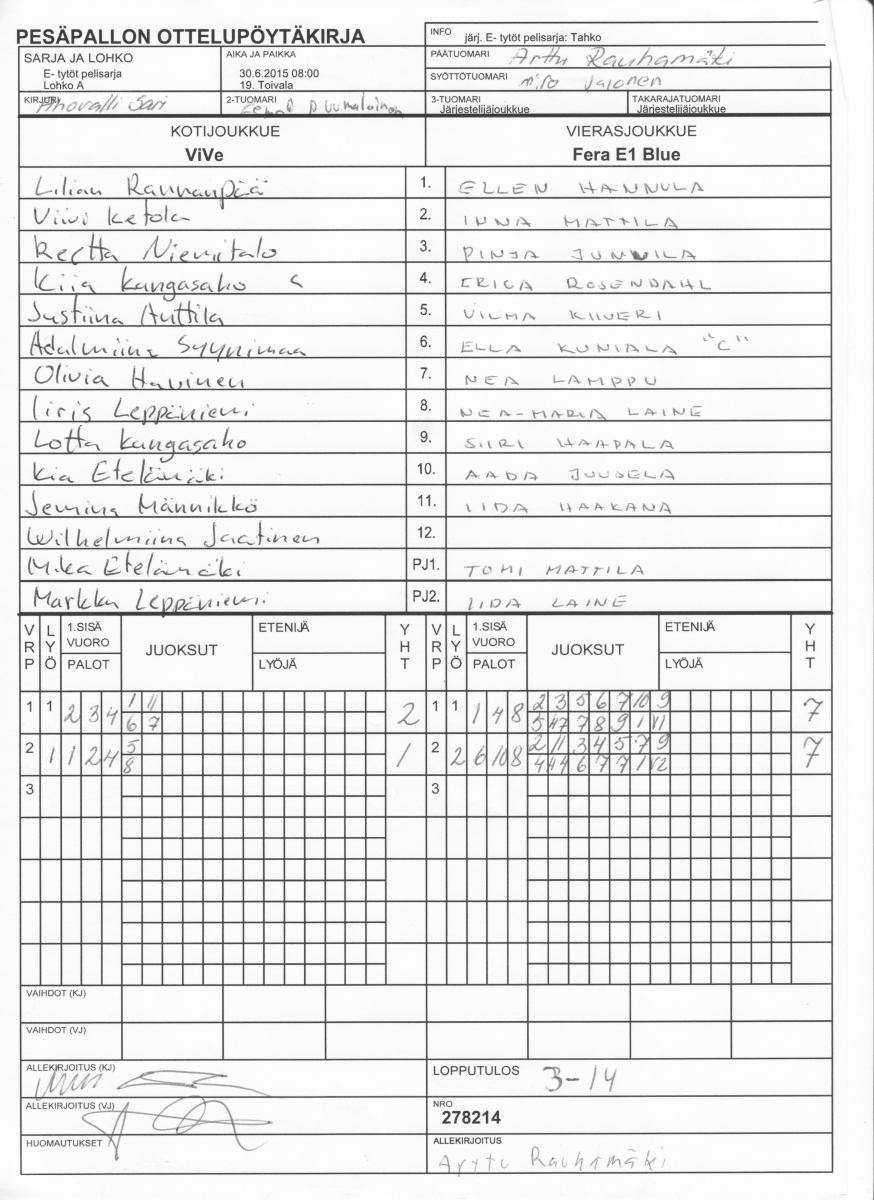 PESÄPALLON OTTELUPÖYTÄKIRJA
INFO järj. E- tytöt pelisarja: Tahko
SARJA JA LOHKO
E- tytöt pelisarja
Lohko A
AIKA JA PAIKKA
30.6.2015 08:00
19. Toivala
PÄÄTUOMARI Arttu Rauhamäki
SYÖTTÖTUOMARI Miro Jalonen
KIRJURI Ahovalli Sari
2-TUOMARI
3-TUOMARI
Järjestelijäjoukkue
TAKARAJATUOMARI
Järjestelijäjoukkue
KOTIJOUKKUE VIERASJOUKKUE
ViVe Fera E1 Blue
Lilian Rannanpää 1. ELLEN HANNULA
Viivi Ketola 2. INNA MATTILA
Reetta Niemitalo 3. PINJA JUNNILA
Kiia Kangasaho c 4. ERICA ROSENDAHL
Justiina Anttila 5. VILMA KIIVERI
Adalmiina Syynimaa 6. ELLA KUNIALA "C"
Olivia Havinen 7. NEA LAMPPU
Iiris Leppäniemi 8. NEA-MARIA LAINE
Lotta Kangasaho 9. SIIRI HAAPALA
Kia Etelämäki 10. AADA JUUSELA
Jemina Männikkö 11. IIDA HAAKANA
Wilhelmiina Jaatinen 12.
Mika Etelämäki PJ1. TOMI MATTILA
Markku Leppäniemi PJ2. IIDA LAINE
VRP LYÖ 1.SISÄ VUORO PALOT JUOKSUT ETENIJÄ LYÖJÄ YHT VRP LYÖ 1.SISÄ VUORO PALOT JUOKSUT ETENIJÄ LYÖJÄ YHT
1 1 2 3 4 1 11 2 1 1 1 4 8 2 3 5 6 7 10 9 7
6 7 5 7 8 9 1 V1
2 1 1 2 4 5 1 2 2 6 10 8 2 11 3 4 5 7 9 7
8 4 4 6 7 7 1 V2
3 3
VAIHDOT (KJ)
VAIHDOT (VJ)
ALLEKIRJOITUS (KJ) LOPPUTULOS 3-14
ALLEKIRJOITUS (VJ) NRO
278214
HUOMAUTUKSET ALLEKIRJOITUS
Arttu Rauhamäki